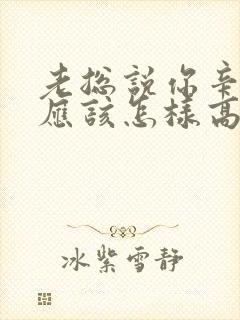 老總說你辛
應該怎樣高
冰紫雪靜